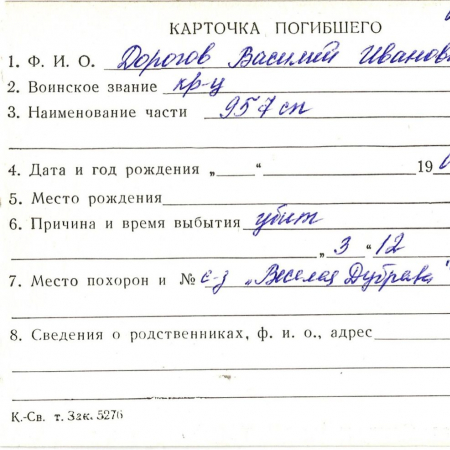 КАРТОЧКА ПОГИБШЕГО
1. Ф. И. О. Дорогов Василий Иванов
2. Воинское звание кр-ц
3. Наименование части 957 сп
4. Дата и год рождения „ “ 190
5. Место рождения
6. Причина и время выбытия убит
„ 3 “ 12
7. Место похорон и № с-з „Веселая Дубрава"
8. Сведения о родственниках, ф. и. о., адрес
К.-Св. т. Зак. 5276